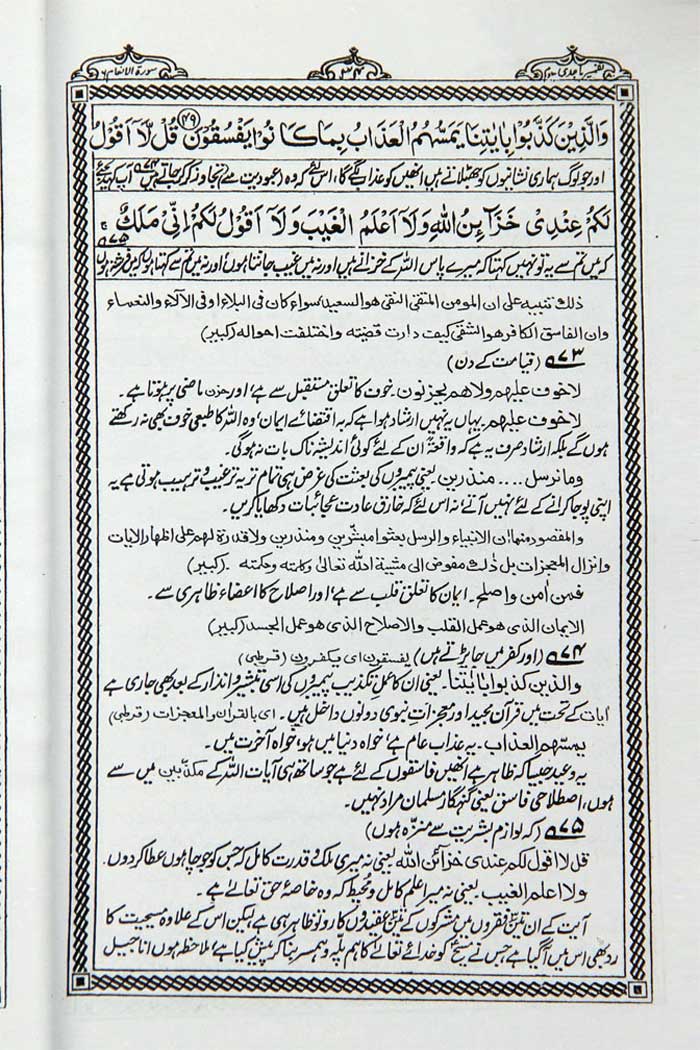 تفسیر ماجدی جلد دوم ۳۴ سورۃ الانعام ۶
وَالَّذِيْنَ كَذَّبُوْا بِاٰيٰتِنَا يَمَسُّهُمُ الْعَذَابُ بِمَا كَانُوْا يَفْسُقُوْنَ ﴿۴۹﴾ قُلْ لَّآ اَقُوْلُ
اور جو لوگ ہماری نشانیوں کو جھٹلاتے ہیں انھیں کو عذاب لگے گا، اس لئے کہ وہ (عبودیت سے) تجاوز کر جاتے ہیں ۹۷۴ آپ کہہ دیجئے
لَكُمْ عِنْدِيْ خَزَآئِنُ اللّٰهِ وَلَآ اَعْلَمُ الْغَيْبَ وَلَآ اَقُوْلُ لَكُمْ اِنِّيْ مَلَكٌ ج
کہ میں تم سے یہ تو نہیں کہتا کہ میرے پاس اللہ کے خزانے ہیں اور نہ میں غیب جانتا ہوں، اور نہ میں تم سے کہتا ہوں کہ میں فرشتہ ہوں ۹۷۵
ذلك تنبيه على ان المومن المتقى النقى هو السعيد سواء كان فى البلاء او فى الآلاء والنعماء
وان الفاسق الكافر هو الشقى كيف دارت قضيته واختلفت احواله (كبير)
۹۷۳ (قیامت کے دن)
لا خوف عليهم ولاهم يحزنون۔ خوف کا تعلق مستقبل سے ہے، اور حزن ماضی پر ہوتا ہے۔
لا خوف عليهم۔ یہاں یہ نہیں ارشاد ہوا ہے کہ بہ اقتضائے ایمان، وہ اللہ کا طبعی خوف بھی نہ رکھتے
ہوں گے بلکہ ارشاد صرف یہ ہے کہ واقعۃً ان کے لئے کوئی اندیشہ ناک بات نہ ہوگی۔
وما نرسل .... منذرين یعنی پیمبروں کی بعثت کی غرض ہی تمام تر یہ ترغیب و ترہیب ہوتی ہے یہ
اپنی پوجا کرانے کے لئے نہیں آتے، نہ اس لئے کہ خارق عادت عجائبات دکھایا کریں۔
والمقصود منها ان الانبياء والرسل بعثوا مبشرين ومنذرين ولا قدرة لهم على اظهار الايات
وانزال المعجزات بل ذلك مفوض الى مشية الله تعالى وكلمته وحكمته۔ (كبير)
فمن اٰمن واصلح۔ ایمان کا تعلق قلب سے ہے، اور اصلاح کا اعضاء ظاہری سے۔
الايمان الذى هو عمل القلب والاصلاح الذى هو عمل الجسد (كبير)
۹۷۴ (اور کفر میں جا پڑتے ہیں) يفسقون اى يكفرون (قرطبى)
والذين كذبوا باياتنا۔ یعنی ان کا عمل تکذیب پیمبروں کی اسی تبشیر و انذار کے بعد بھی جاری ہے
ایات کے تحت میں قرآن مجید اور معجزات نبوی دونوں داخل ہیں۔ اى بالقران والمعجزات (قرطبى)
يمسهم العذاب۔ یہ عذاب عام ہے، خواہ دنیا میں ہو، خواہ آخرت میں۔
یہ وعید جیسا کہ ظاہر ہے انھیں فاسقوں کے لئے ہے جو ساتھ ہی آیات اللہ کے مکذبین میں سے
ہوں، اصطلاحی فاسق یعنی گنہگار مسلمان مراد نہیں۔
۹۷۵ (کہ لوازم بشریت سے منزہ ہوں)
قل لا اقول لكم عندى خزائن الله یعنی نہ میری ملک و قدرت کامل کہ جس کو جو چاہوں عطا کردوں۔
ولا اعلم الغيب۔ یعنی نہ میرا علم کامل و محیط کہ وہ خاصۂ حق تعالیٰ ہے۔
آیت کے ان تین فقروں میں مشرکوں کے تین عقیدوں کا رد تو ظاہر ہی ہے لیکن اس کے علاوہ مسیحیت کا
رد بھی اس میں آگیا ہے جس نے مسیحؑ کو خدائے تعالیٰ کا ہم پلہ و ہمسر بنا کر پیش کیا ہے، ملاحظہ ہوں اناجیل